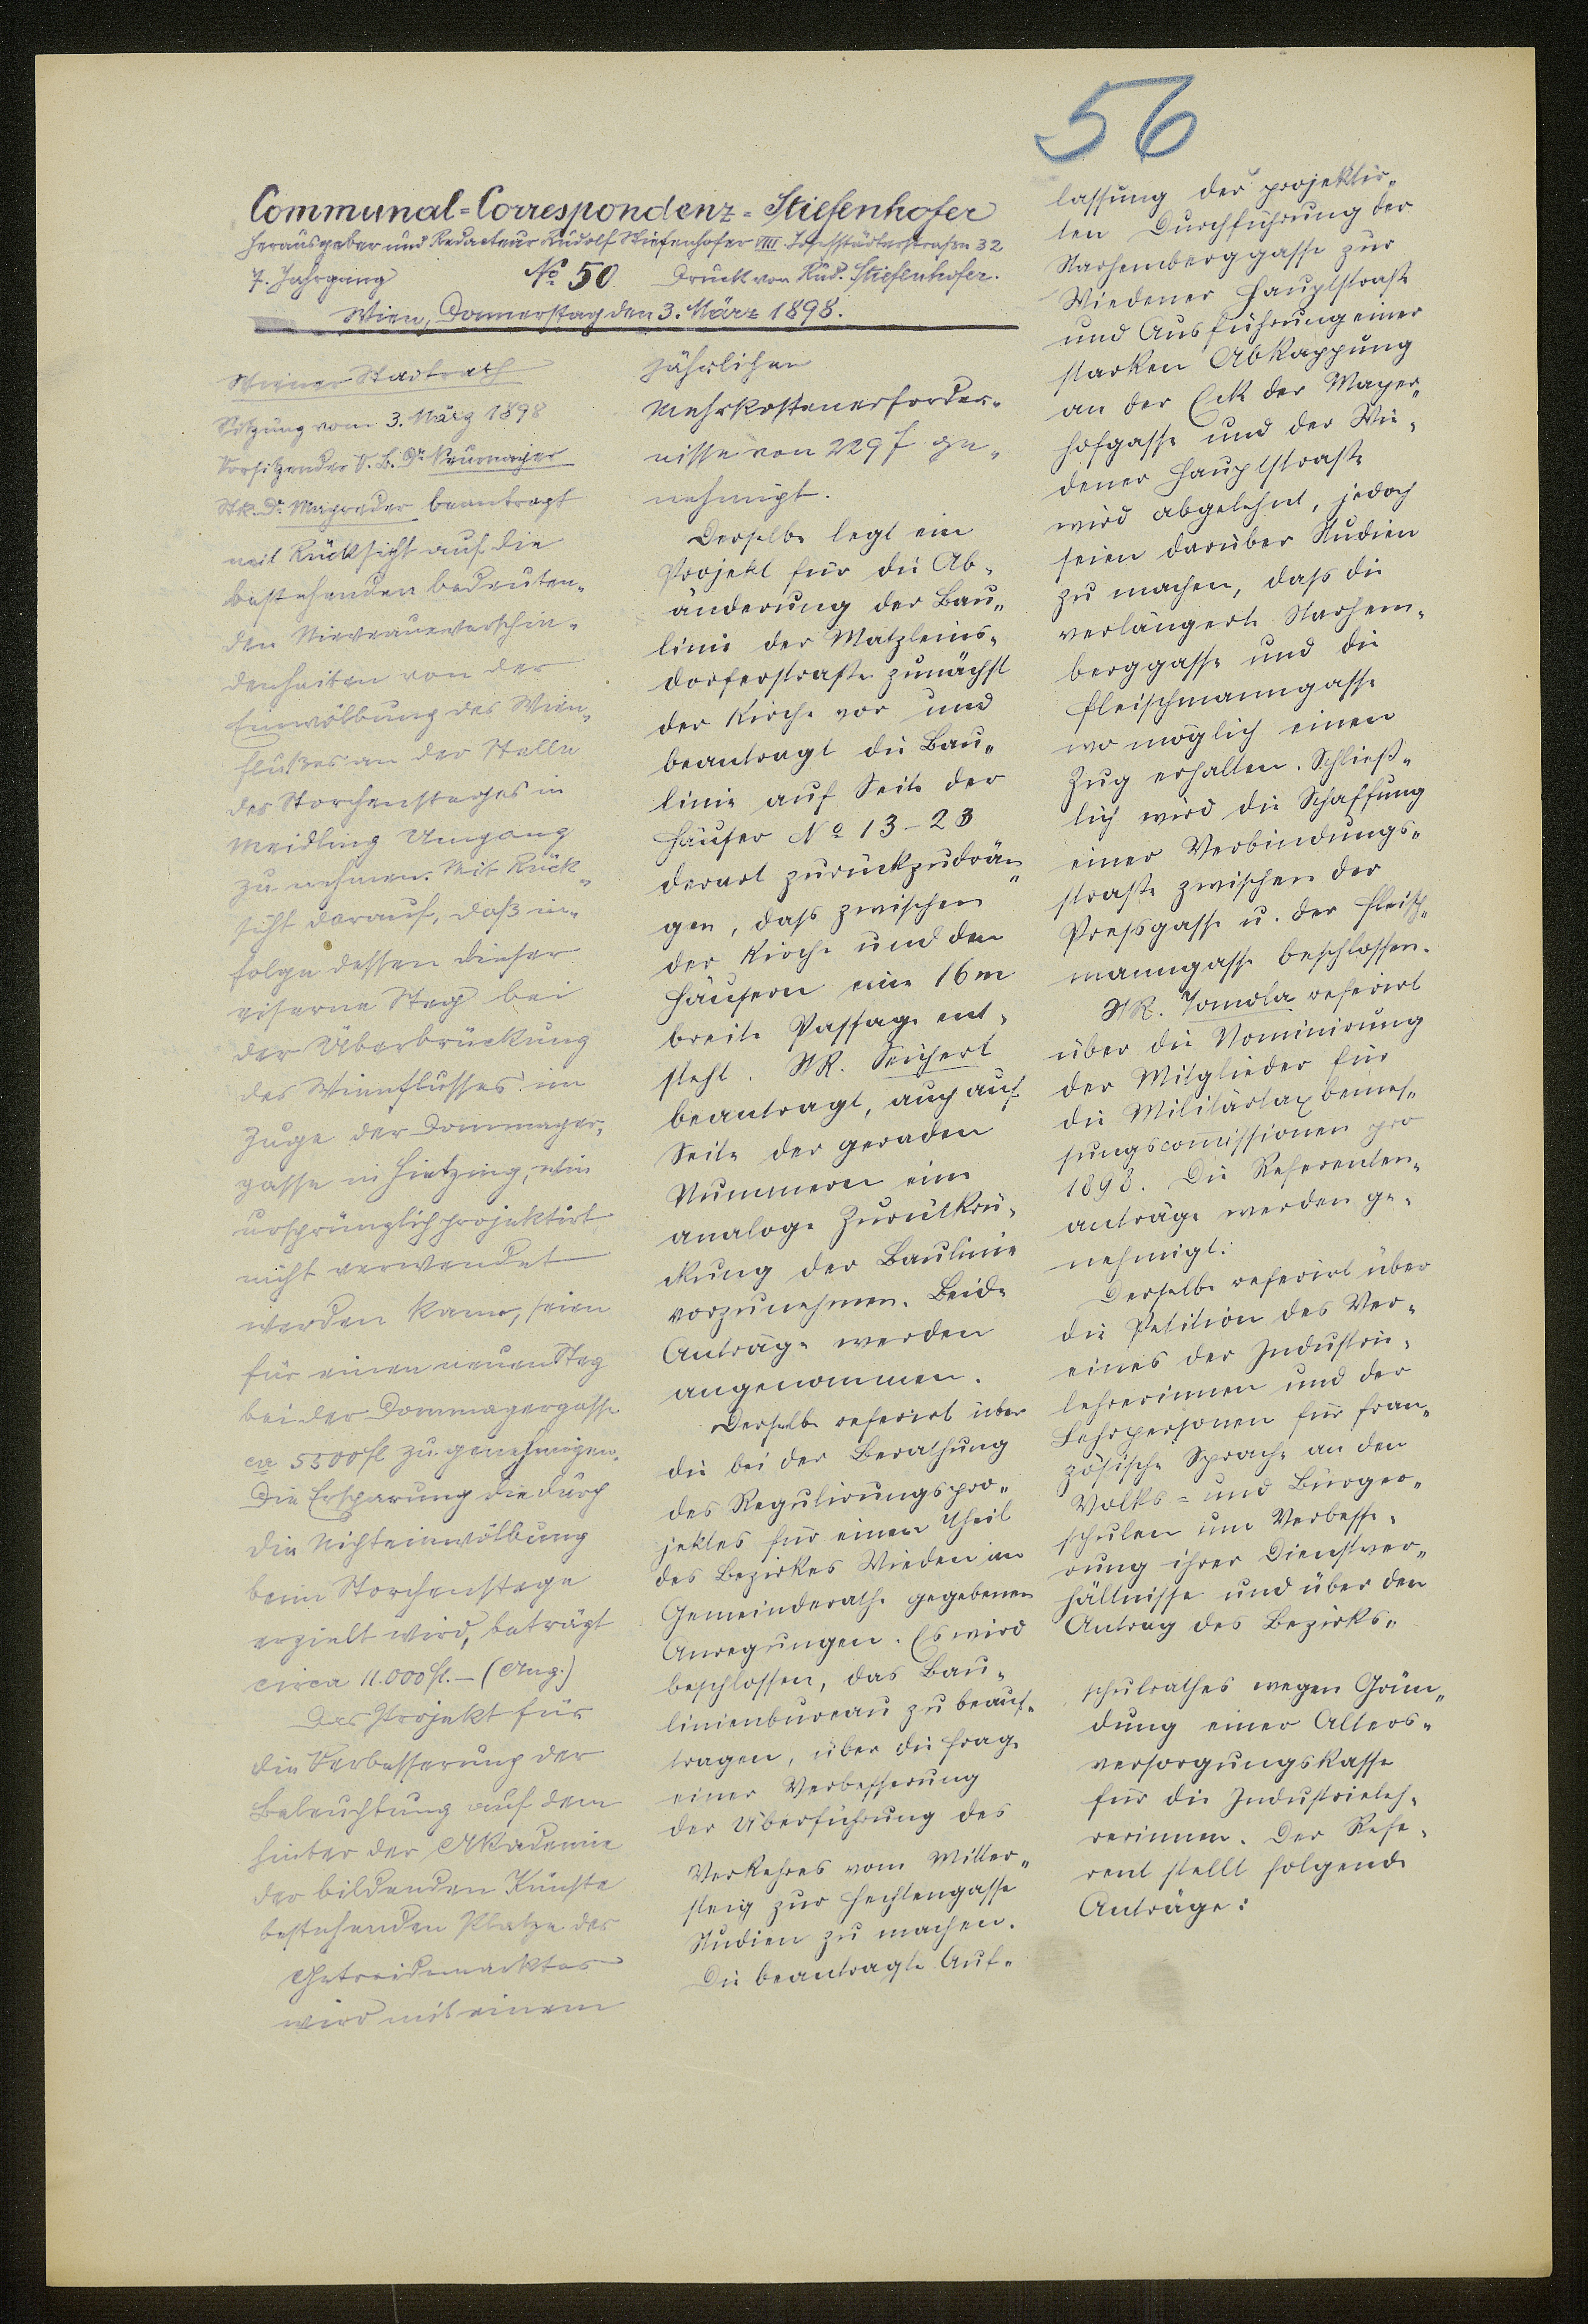 56
Communal=Correspondenz=Stiefenhofer
Herausgeber und Redacteur Rudolf Stiefenhofer VIII Josefstädterstrasse 32
7. Jahrgang No 50 Druck von Rud. Stiefenhofer.
Wien, Donnerstag den 3. März 1898.
Wiener Stadtrath
Sitzung vom 3. März 1898
Vorsitzender V. B. Dr. Neumayer
Str. Dr. Mayreder beantragt
mit Rücksicht auf die
bestehenden bedeuten-
den Niveauverschie-
denheiten von der
Einwölbung des Wien-
flußes an der Stelle
des Storchensteges in
Meidling Umgang
zu nehmen. Mit Rück-
sicht darauf, daß in-
folge dessen dieser
eiserne Steg bei
der Überbrückung
des Wienflusses im
Zuge der Dommayer-
gasse in Hietzing, wie
ursprünglich projektirt,
nicht verwendet
werden kann, seien
für einen neuen Steg
bei der Dommayergasse
ca 5500 fl zu genehmigen.
Die Ersparung die durch
die Nichteinwölbung
beim Storchenstege
erzielt wird, beträgt
circa 11.000 fl. – (Ang.)
Das Projekt für
die Verbesserung der
Beleuchtung auf dem
hinter der Akademie
der bildenden Künste
bestehenden Platze des
Getreidemarktes
wird mit einem
jährlichen
Mehrkostenerforder-
nisse von 229 f ge-
nehmigt.
Derselbe legt ein
Projekt für die Ab-
änderung der Bau-
linie der Matzleins-
dorferstraße zunächst
der Kirche vor und
beantragt die Bau-
linie auf Seite der
Häuser No 13–23
derart zurückzudrän-
gen, dass zwischen
der Kirche und den
Häusern eine 16 m
breite Passage ent-
steht. StR. Seichert
beantragt, auch auf
Seite der geraden
Nummern eine
analoge Zurückrü-
ckung der Baulinie
vorzunehmen. Beide
Anträge werden
angenommen.
Derselbe referirt über
die bei der Berathung
des Regulirungspro-
jektes für einen Theil
des Bezirkes Wieden im
Gemeinderathe gegebenen
Anregungen. Es wird
beschlossen, das Bau-
linienbureau zu beauf-
tragen, über die Frage
einer Verbesserung
der Überführung des
Verkehres vom Mitter-
steig zur Hechtengasse
Studien zu machen.
Die beantragte Auf-
lassung der projektir-
ten Durchführung der
Starhemberggasse zur
Wiedener Hauptstraße
und Ausführung einer
starken Abkappung
an der Ecke der Mayer-
hofgasse und der Wie-
dener Hauptstraße
wird abgelehnt, jedoch
seien darüber Studien
zu machen, dass die
verlängerte Starhem-
berggasse und die
Fleischmanngasse
wo möglich einen
Zug erhalten. Schließ-
lich wird die Schaffung
einer Verbindungs-
straße zwischen der
Pressgasse u. der Fleisch-
manngasse beschlossen.
StR. Tomola referirt
über die Nominirung
der Mitglieder für
die Militärtaxbemes-
sungscommissionen pro
1898. Die Referenten-
anträge werden ge-
nehmigt.
Derselbe referirt über
die Petition des Ver-
eines der Industrie-
lehrerinnen und der
Lehrpersonen für fran-
zösische Sprache an den
Volks= und Bürger-
schulen um Verbesse-
rung ihrer Dienstver-
hältnisse und über den
Antrag des Bezirks-
schulrathes wegen Grün-
dung einer Alters-
versorgungskasse
für die Industrieleh-
rerinnen. Der Refe-
rent stellt folgende
Anträge: